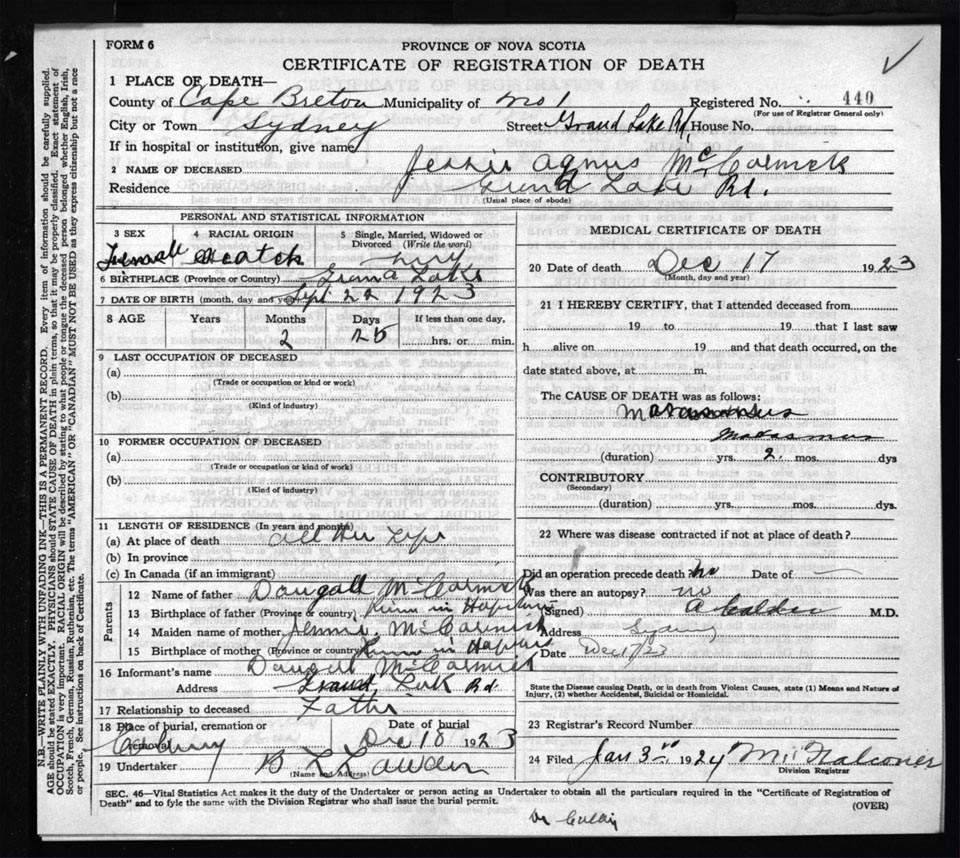 FORM 6
PROVINCE OF NOVA SCOTIA
CERTIFICATE OF REGISTRATION OF DEATH
1 PLACE OF DEATH—
County of Cape Breton Municipality of No 1 Registered No. 440
(For use of Registrar General only)
City or Town Sydney Street Grand Lake Rd. House No.
If in hospital or institution, give name
2 NAME OF DECEASED Jessie Agnus McCormick
Residence Grand Lake Rd.
(Usual place of abode)
PERSONAL AND STATISTICAL INFORMATION
3 SEX 4 RACIAL ORIGIN 5 Single, Married, Widowed or Divorced (Write the word)
Female Scotch
6 BIRTHPLACE (Province or Country) Grand Lake
7 DATE OF BIRTH (month, day and year) Sept 22 1923
8 AGE Years Months Days If less than one day,
2 25 hrs. or min.
9 LAST OCCUPATION OF DECEASED
(a)
(Trade or occupation or kind or work)
(b)
(Kind of industry)
10 FORMER OCCUPATION OF DECEASED
(a)
(Trade or occupation or kind or work)
(b)
(Kind of industry)
11 LENGTH OF RESIDENCE (In years and months)
(a) At place of death all her Life
(b) In province
(c) In Canada (if an immigrant)
Parents
12 Name of father Dougall McCormick
13 Birthplace of father (Province or country)
14 Maiden name of mother Jennie McCormick
15 Birthplace of mother (Province or country)
16 Informant's name Dougall McCormick
Address Grand Lake Rd
17 Relationship to deceased Father
18 Place of burial, cremation or removal Date of burial
Dec 18 1923
19 Undertaker
(Name and Address)
MEDICAL CERTIFICATE OF DEATH
20 Date of death Dec 17 1923
(Month, day and year)
21 I HEREBY CERTIFY, that I attended deceased from
19 to 19 that I last saw
h alive on 19 and that death occurred, on the
date stated above, at m.
The CAUSE OF DEATH was as follows:
Marasmus
(duration) yrs. 2 mos. dys
CONTRIBUTORY
(Secondary)
(duration) yrs. mos. dys.
22 Where was disease contracted if not at place of death?
Did an operation precede death? no Date of —
Was there an autopsy? no
(Signed) A Calder M.D.
Address Sydney
Date Dec 17/23
State the Disease causing Death, or in death from Violent Causes, state (1) Means and Nature of Injury, (2) whether Accidental, Suicidal or Homicidal.
23 Registrar's Record Number
24 Filed Jan 3rd 1924
Division Registrar
SEC. 46—Vital Statistics Act makes it the duty of the Undertaker or person acting as Undertaker to obtain all the particulars required in the "Certificate of Registration of
Death" and to fyle the same with the Division Registrar who shall issue the burial permit.
(OVER)
N.B.—WRITE PLAINLY WITH UNFADING INK.—THIS IS A PERMANENT RECORD. Every item of information should be carefully supplied.
AGE should be stated EXACTLY. PHYSICIANS should STATE CAUSE OF DEATH in plain terms, so that it may be properly classified. Exact statement of
OCCUPATION is very important. RACIAL ORIGIN will be described by stating to what people or tongue the deceased person belonged whether English, Irish,
Scotch, French, German, Russian, Ruthenian, etc. The terms "AMERICAN" OR "CANADIAN" MUST NOT BE USED as they express citizenship but not a race
or people. See instructions on back of Certificate.